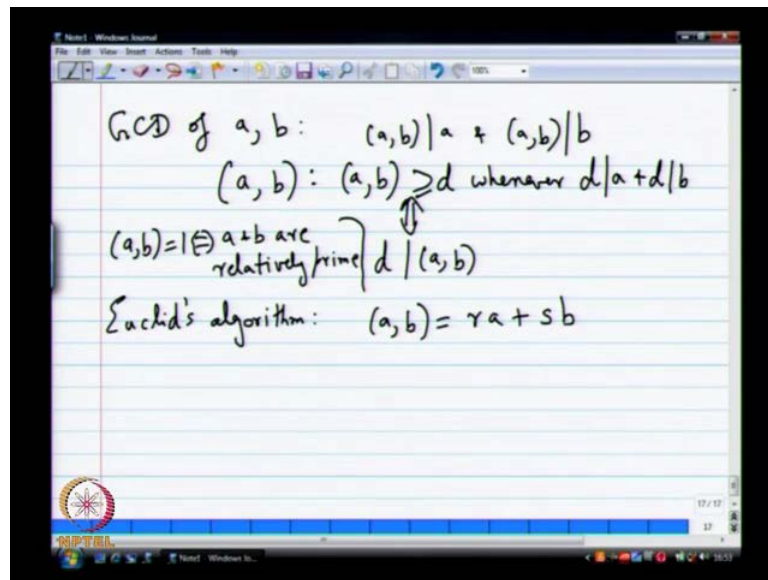 Note1 - Windows Journal
File Edit View Insert Actions Tools Help
100%
GCD of a, b : (a,b) | a & (a,b) | b
(a, b) : (a,b) ⩾ d whenever d | a + d | b
⇕
(a,b) = 1 ⇔ a + b are relatively prime
d | (a,b)
Euclid's algorithm : (a,b) = ra + sb
17/17
17
NPTEL
Note1 - Windows Jo...
16:53